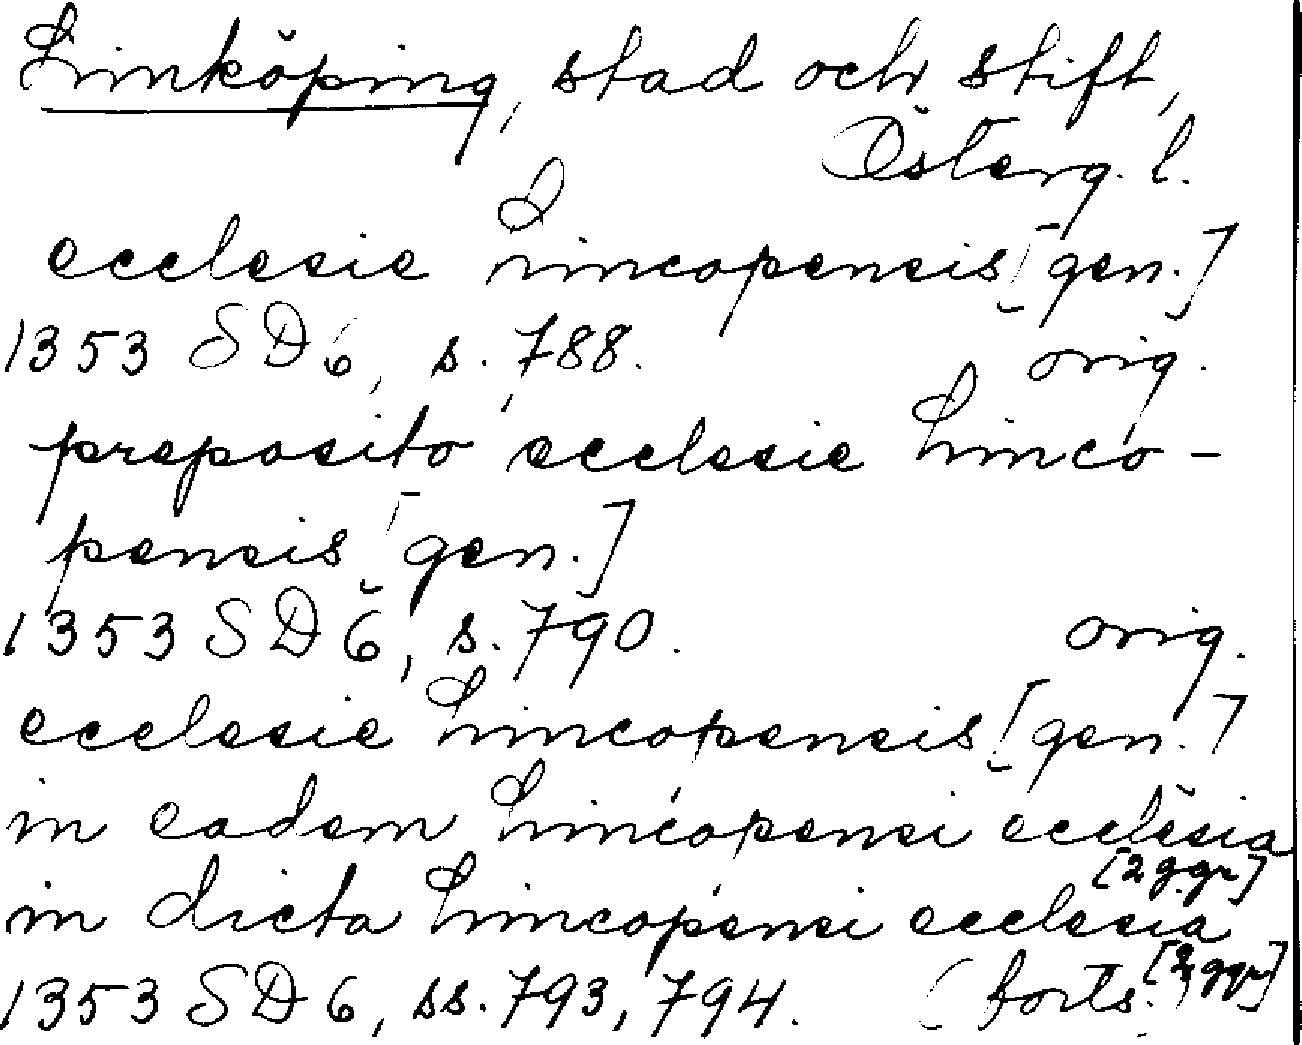 Linköping, stad och stift,
Österg. l.
ecclesie Lincopensis [gen.]
1353 SD 6, s. 788. orig.
preposito ecclesie Linco-
pensis [gen.]
1353 SD 6, s. 790. orig.
ecclesie Lincopensis [gen.]
in eadem Lincopensi ecclesia
[2 ggr]
in dicta Lincopensi ecclesia
[2 ggr]
1353 SD 6, ss. 793, 794. (forts.)